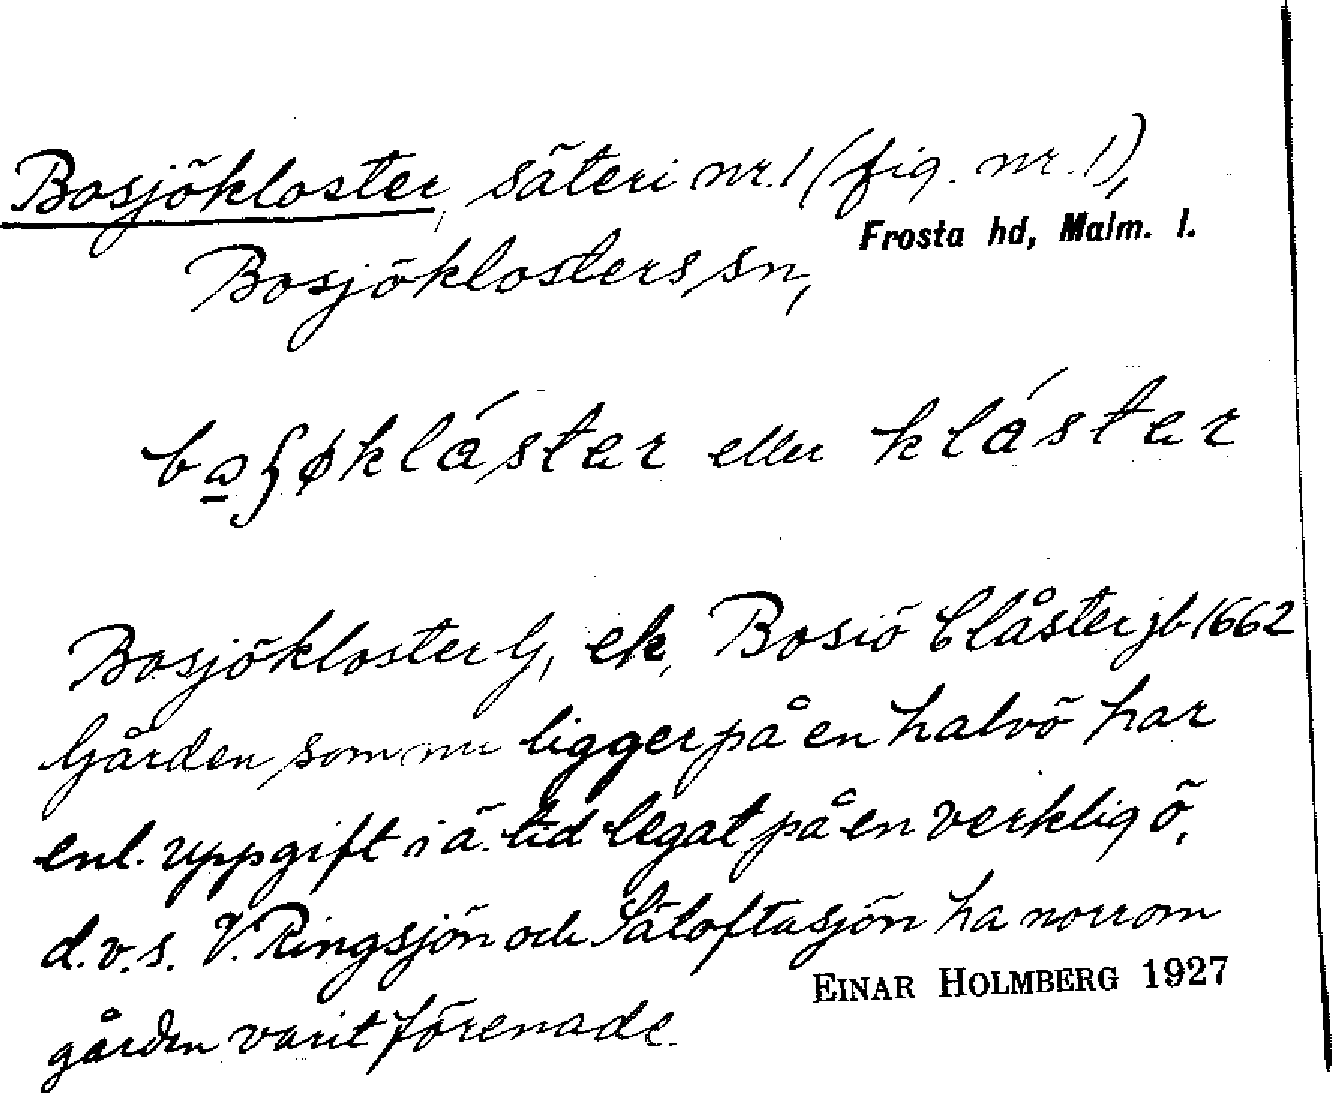 Bosjökloster, säteri nr. 1 (fig. nr. 1),
Frosta hd, Malm. l.
Bosjöklosters sn,
eller klástar
Bosjökloster G, ek, Bosiö Clåster jb 1662
Gården som nu ligger på en halvö har
enl. uppgift i ä. tid legat på en verklig ö,
d.v.s. V. Ringsjön och Sätoftasjön ha norr om
gården varit förenade.
EINAR HOLMBERG 1927